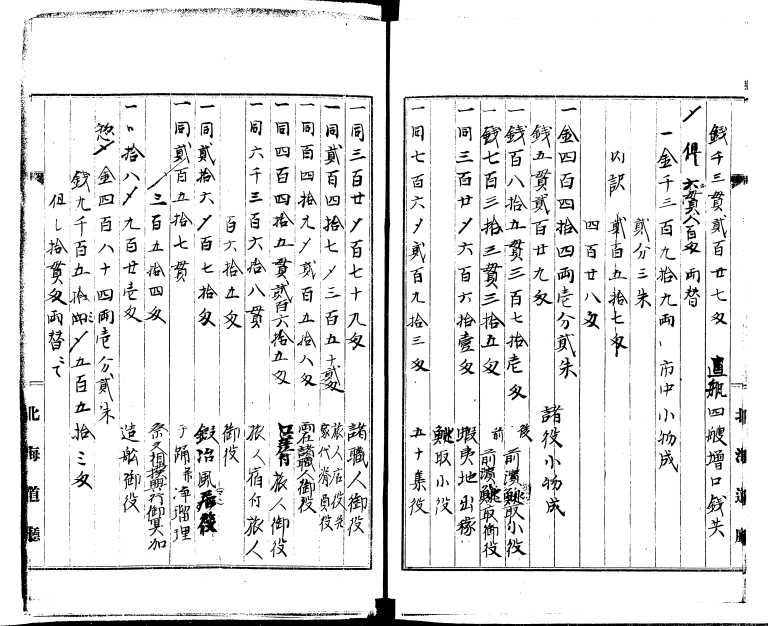 銭千三貫貳百廿七匁 直瓶四艘増口銭共
〆但六貫八百匁両替
一金千三百九拾九両 市中小物成
貳分三朱
内訳 貳百五拾七匁
四百廿八匁
一金四百四拾四両壱分貳朱 諸役小物成
銭五貫貳百廿九匁
一銭百八拾五貫三百七拾壱匁 前濱鯡取小役
一銭七百三拾三貫三拾五匁 前濱鯡取御役
一同三百廿〆六百六拾壹匁 蝦夷地出稼
鯡取小役
一同七百六〆貳百九拾三匁 五十集役
一同三百廿〆百七十九匁 諸職人御役
一同貳百四拾七〆三百五十貳匁 旅人店役
一同百四拾九〆貳百五拾八匁 両在諸職御役
一同四百四拾五貫貳百六拾五匁 旅人御役
一同六千三百六拾八貫 旅人宿付旅人
百六拾五匁 御役
一同貳拾六〆百七拾匁 鍛冶風居役
一同貳百五拾七貫
三百五拾四匁 祭又相撲興行御冥加
一〃拾八〆九百廿壱匁 造舩御役
惣〆金四百八十四両壱分貳朱
銭九千百五拾〆五百五拾三匁
但し拾貫匁両替ニて
北海道廳
北海道廳